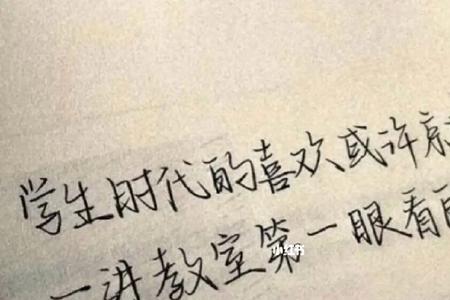 学生时代的喜欢或许就
一进教室第一眼看
小红书